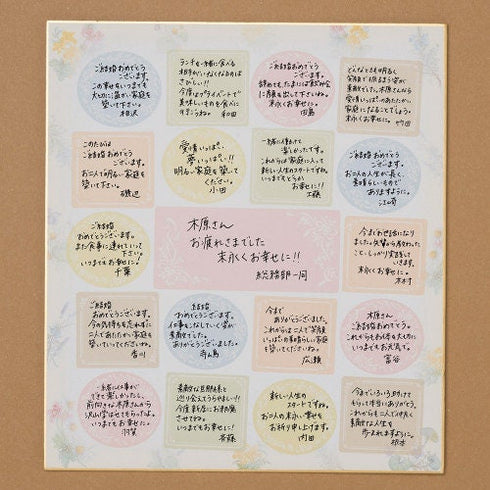 ご結婚おめでとう
ございます。
この幸せをいつまでも
大切に温かい家庭を
築いて下さい。
相沢
ランチを一緒に食べる
相手がいなくなるのは
さびしい!!
今度はプライベートで
美味しいものを食べに
行こうね。和田
ご結婚おめでとう
ございます。
辞めてもたまには飲み会
に顔を出して下さいね。
末永くお幸せに。
田島
どんなときも明るく
笑顔で
素敵でした。木原さんなら
愛情いっぱいのあたたかい
家庭になることでしょう。
末永くお幸せに。竹田
このたびは
ご結婚おめでとう
ございます。
お二人で明るい家庭を
築いて下さい。
磯辺
愛情いっぱい、
夢いっぱい!!
明るい家庭を築いて
ください。
小田
一緒に働けて
楽しかったです。
これからは家庭に入って
新しい人生のスタートですね。
いつまでもどうか
お幸せに!!
工藤
ご結婚おめでとう
ございます。
お二人の人生が長く、
素晴らしいもので
ありますように。
江崎
ご結婚
おめでとうございます。
また食事に連れていって
下さいね。
いつまでもお幸せに。
千葉
木原さん
お疲れさまでした
末永くお幸せに!!
総務部一同
今までお世話になり
ました。
こと、しっかり実践して
いきます。
末永くお幸せに。
木村
ご結婚
おめでとうございます。
今の気持ちを忘れずに
二人であたたかい家庭を
築いていってくださいね。
香川
ご結婚
おめでとうございます。
仕事をこなしていく姿が
素敵でした。
ありがとうございました。
寺島
今まで
ありがとうございました。
これからは二人で笑顔
いっぱいの素晴らしい家庭
を築いてくださいね。
広瀬
木原さん
ご結婚おめでとう。
これからもお体を大切に
いつまでもお元気で。
富谷
ご一緒に仕事が
できて楽しかったし、
前向きな木原さんから
沢山学ばせてもらったよ。
いつまでもお幸せに。
羽賀
素敵な旦那様と
巡り会えてうらやましい!!
今度新居にお邪魔
させてね。
いつまでもお幸せに!
斉藤
新しい人生の
スタートですね。
お二人の末永い幸せを
お祈り申し上げます。
内田
今までいろいろ助けて
もらって本当にありがとう。
これからも二人で仲良く
素敵な人生を
歩まれますように。
根本